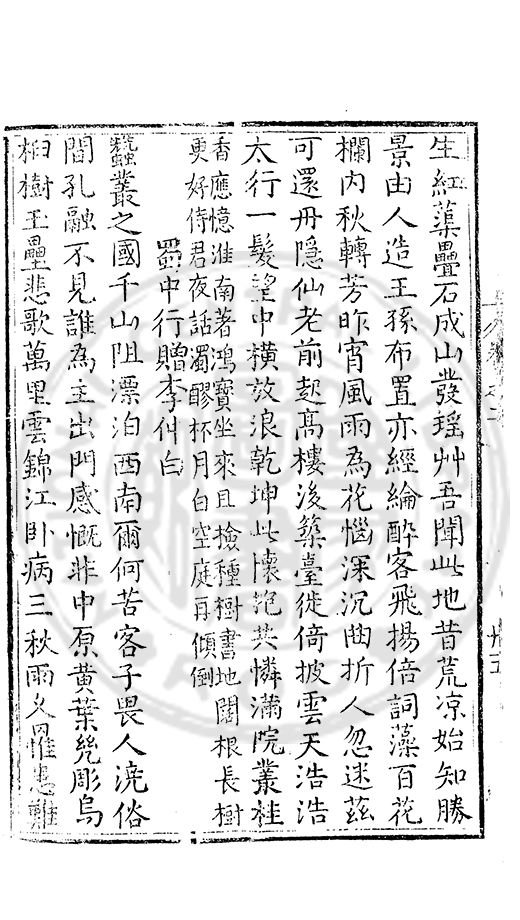 生紅蕖疊石成山發瑤艸吾聞此地昔荒凉始知勝
景由人造王孫布置亦經綸醉客飛揚倍詞藻百花
欄內秋轉芳昨宵風雨為花惱深沉曲折人忽迷茲
可還丹隱仙老前起高樓後築臺徙倚披雲天浩浩
太行一髮望中橫放浪乾坤此懷抱共憐滿院叢桂
香應憶淮南著鴻寶坐來且撿種樹書地闊根長樹
更好侍君夜話濁醪杯月白空庭再傾倒
蜀中行贈李仲白
蠶叢之國千山阻漂泊西南爾何苦客子畏人澆俗
間孔融不見誰為主出門感慨非中原黃葉凭彫烏
桕樹玉壘悲歌萬里雲錦江卧病三秋雨久罹患難